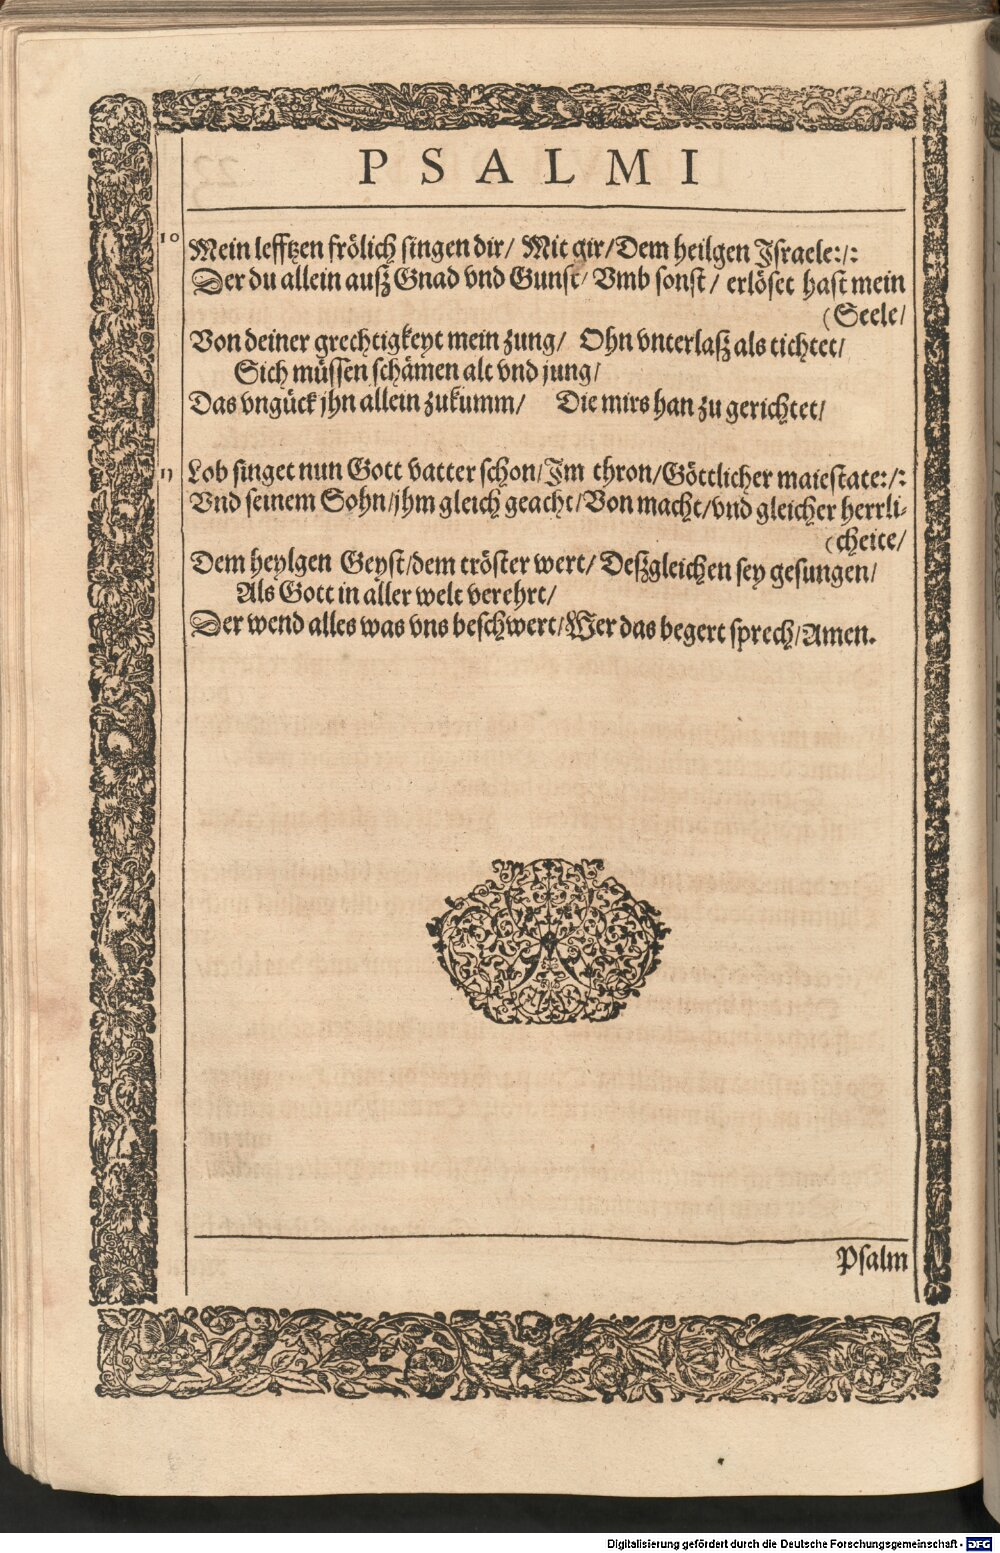 PSALMI
10 Mein lefftzen frölich singen dir/ Mit gir/ Dem heilgen Israele:/:
Der du allein auß Gnad vnd Gunst/ Vmb sonst/ erlöset hast mein
(Seele/
Von deiner grechtigkeyt mein zung/ Ohn vnterlaß als tichtet/
Sich müssen schämen alt vnd jung/
Das vngück jhn allein zukumm/ Die mirs han zu gerichtet/
11 Lob singet nun Gott vatter schon/ Im thron/ Göttlicher maiestate:/:
Vnd seinem Sohn/ jhm gleich geacht/ Von macht/ vnd gleicher herrli-
(cheite/
Dem heylgen Geyst/ dem tröster wert/ Deßgleichen sey gesungen/
Als Gott in aller welt verehrt/
Der wend alles was vns beschwert/ Wer das begert sprech/ Amen.
Psalm
Digitalisierung gefördert durch die Deutsche Forschungsgemeinschaft - DFG